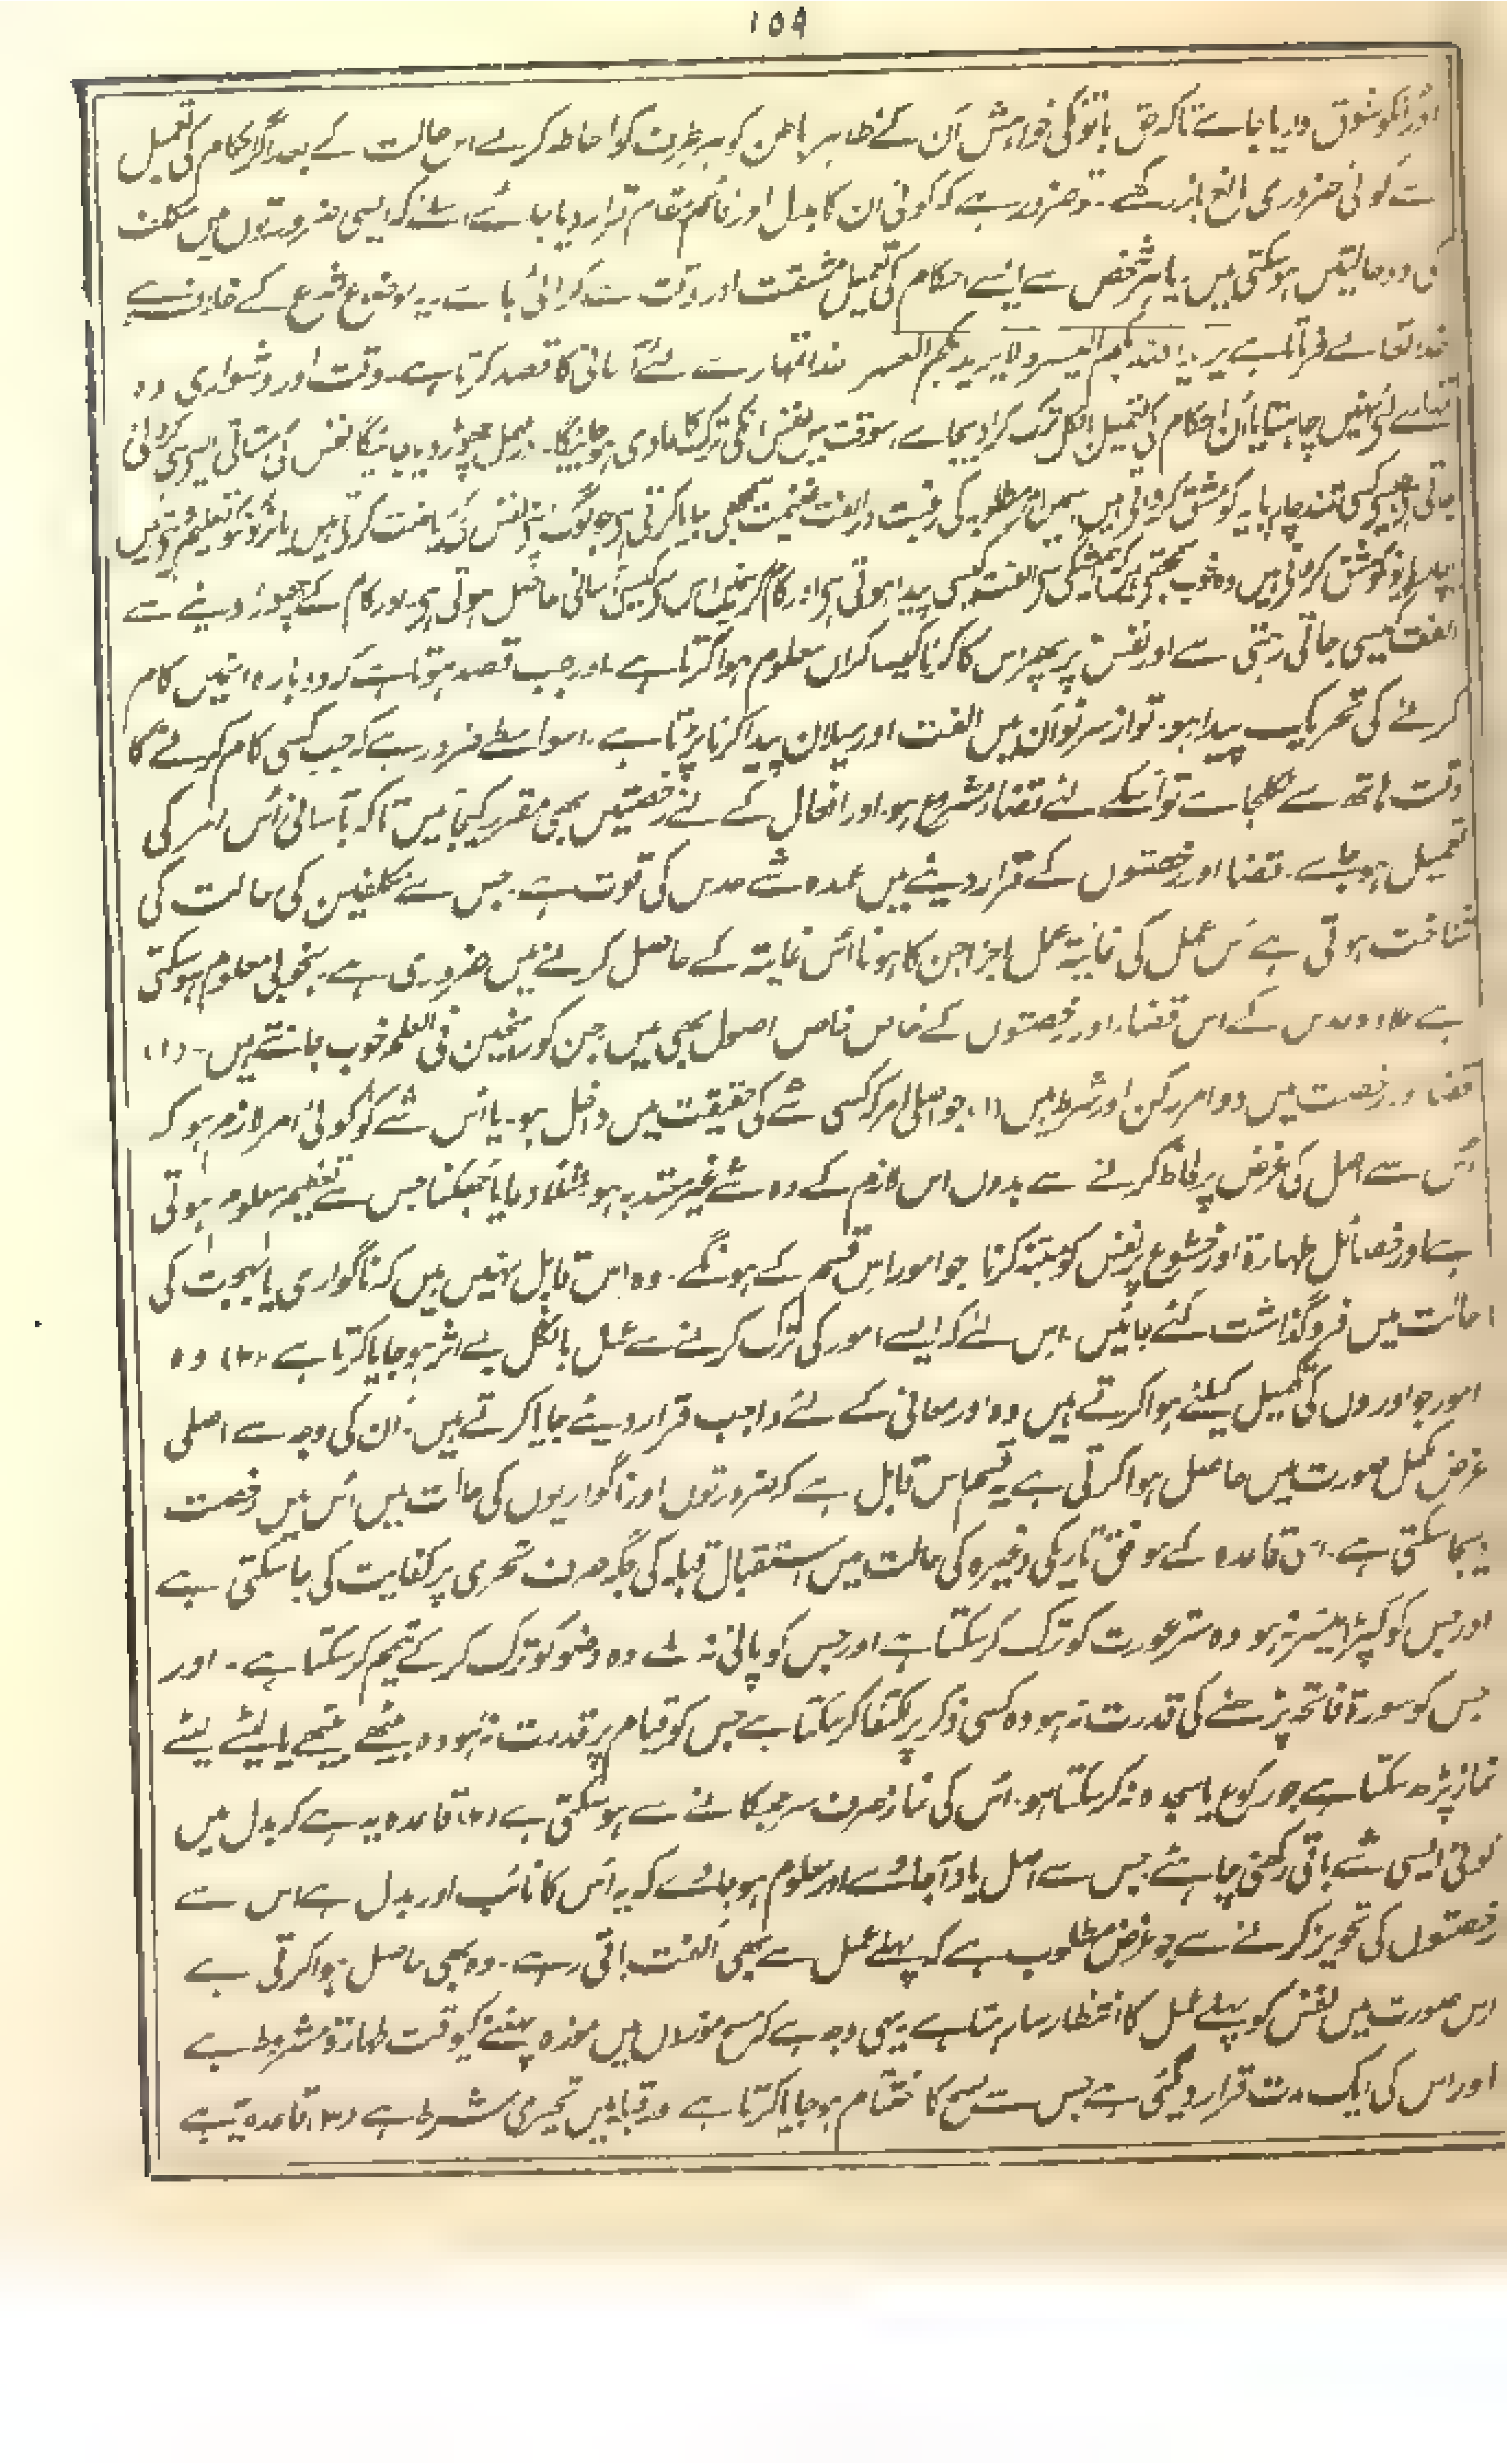 ۱۵۹
اور انکو شوق دلایا جاے تاکہ حق باتونکی خواہش اُن کے ظاہر باطن کو ہر طرف کو احاطہ کرے اس حالت کے بعد اگر احکام کی تعمیل
سے کوئی ضروری مانع باز رکھے۔ تو ضرور ہے کہ کوئی ان کا بدل اور قائم مقام قرار دیا جائے اسلئے کہ ایسی ضرورتوں میں مکلف
کی دو حالیتں ہو سکتی ہیں۔ یا ہر شخص سے ایسے احکام کی تعمیل مشقت اور دقت سے کرائی جاے یہ موضوع شرع کے خلاف ہے
خدا تعالے فرماتا ہے یرید اللہ بکم الیسر ولا یرید بکم العسر خدا تمہارے لئے آسانی کا قصد کرتا ہے۔ دقت اور دشواری وہ
تمہارے لئے نہیں چاہتا یا اُن احکام کی تعمیل بالکل ترک کرا دیجاے، اسوقت میں نفس انکی ترک کا عادی ہو جائیگا۔ مہمل چھوڑ دیا جائیگا نفس کی مشاقی ایسی ہی کرائی
جاتی ہے جیسے کسی تند چارپایہ کو مشق کرواتی ہیں اسمیں امر مطلوبہ کی رغبت و الفت غنیمت سمجھی جایا کرتی ہے جو لوگ اپنے نفس کی ریاضت کرتی ہیں یا لڑکونکو تعلیم دیتی ہیں
یا چارپایونکو مشق کرواتی ہیں وہ خوب سمجھتی ہیں کہ ہمیشگی سی الفت کیسی پیدا ہوتی ہی اور کام کرنیمیں اس سی کیسی آسانی حاصل ہوتی ہی اور کام کے چھوڑ دینے سے
الفت کیسی جاتی رہتی ہے اور نفس پر پھر اس کا کرنا کیسا گراں معلوم ہوا کرتا ہے اور جب قصد ہوتا ہے کہ دوبارہ انہیں کام
کرنے کی تحریک پیدا ہو۔ تو از سر نو اُن میں الفت اور میلان پیدا کرنا پڑتا ہے۔ اسواسطے ضرور ہے کہ جب کسی کام کرنے کا
وقت ہاتھ سے نکلجاے تو اُسکے لئے قضاء مشروع ہو۔ اور افعال کے لئے رخصتیں بھی مقرر کیجائیں تا کہ بآسانی اُس امر کی
تعمیل ہو جاے۔ قضا اور رخصتوں کے قرار دینے میں عمدہ شے حدس کی قوت ہے۔ جس سے مکلفین کی حالت کی
شناخت ہوتی ہے اس عمل کی غایۃ عمل اجزا جن کا ہونا اُس غایتہ کے حاصل کرنے میں ضروری ہے۔ بخوبی معلوم ہو سکتی
ہے علاوہ حدس کے اس قضاء اور رخصتوں کے خاص خاص اصول بھی ہیں جن کو راسخین فی العلم خوب جانتے ہیں۔ (۱)
قضا و رخصت میں دو امر رکن اور شرط ہیں (۱) جو اصلی امر کہ کسی شے کی حقیقت میں داخل ہو۔ یا اُس شے کو کوئی امر لازم ہو کہ
اُس سے اصل کی غرض پر لحاظ کرنے سے بدوں اس لازم کے وہ شے غیر معتد بہ ہو مثلاً دعا یا جھکنا جس سے تعظیم معلوم ہوتی
ہے اور خصائل طہارۃ اور خشوع پر نفس کو متنبہ کرنا جو امور اس قسم کے ہونگے۔ وہ اس قابل نہیں ہیں کہ ناگواری یا بہجت کی
حالت میں فروگذاشت کئے جائیں اس لئے کہ ایسے امور کی ترک کرنے سے عمل بالکل بے اثر ہو جایا کرتا ہے (۲) وہ
امور جو اوروں کی تکمیل کیلئے ہوا کرتے ہیں وہ اور معانی کے لئے واجب قرار دیئے جایا کرتے ہیں۔ ان کی وجہ سے اصلی
غرض مکمل صورت میں حاصل ہوا کرتی ہے یہ قسم اس قابل ہے کہ ضرورتوں اور ناگواریوں کی حالت میں اُس میں رخصت
دیجا سکتی ہے۔ اس قاعدہ کے موافق تاریکی وغیرہ کی حالت میں استقبال قبلہ کی جگہ صرف تحری پر کفایت کی جا سکتی ہے
اور جس کو کپڑا میسر نہ ہو وہ ستر عورت کو ترک کر سکتا ہے اور جس کو پانی نہ ملے وہ وضو کو ترک کر کے تیمم کر سکتا ہے۔ اور
جس کو سورۃ فاتحہ پڑھنے کی قدرت نہ ہو وہ کسی ذکر پر اکتفا کر سکتا ہے جس کو قیام پر قدرت نہ ہو وہ بیٹھے بیٹھے یا لیٹے لیٹے
نماز پڑھ سکتا ہے جو رکوع یا سجدہ نہ کر سکتا ہو۔ اُس کی نماز صرف سر جھکانے سے ہو سکتی ہے (۲) قاعدہ یہ ہے کہ بدل میں
کوئی ایسی شے باقی رکھنی چاہئے جس سے اصل یاد آجاے اور معلوم ہو جاے کہ یہ اُس کا نائب اور بدل ہے اس سے
رخصتوں کی تجویز کرنے سے جو غرض مطلوب ہے کہ پہلے عمل سے بھی الفت باقی رہے۔ وہ بھی حاصل ہوا کرتی ہے
اس صورت میں نفس کو پہلے عمل کا انتظار سا رہتا ہے یہی وجہ ہے کہ مسح موزوں میں موزہ پہننے کیوقت طہارۃ مشروط ہے
اور اس کی ایک مدت قرار دیگئی ہے جس سے مسح کا اختتام ہو جایا کرتا ہے اور قبلہ میں تحری شرط ہے (۳) قاعدہ یہ ہے